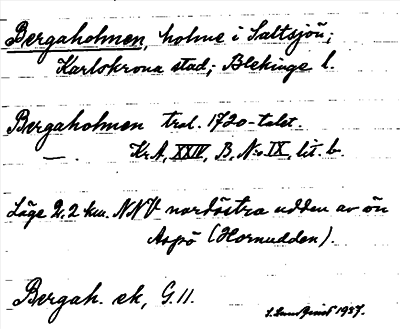 Bergaholmen, holme i Saltsjön;
Karlskrona stad; Blekinge l.
Bergaholmen trol. 1720-talet.
— Kr.A, XXIV, B, N:o IX, lit. b.
Läge 2,2 km. NNV nordöstra udden av ön
Aspö (Hornudden).
Bergah. ek, G.11.
1937.